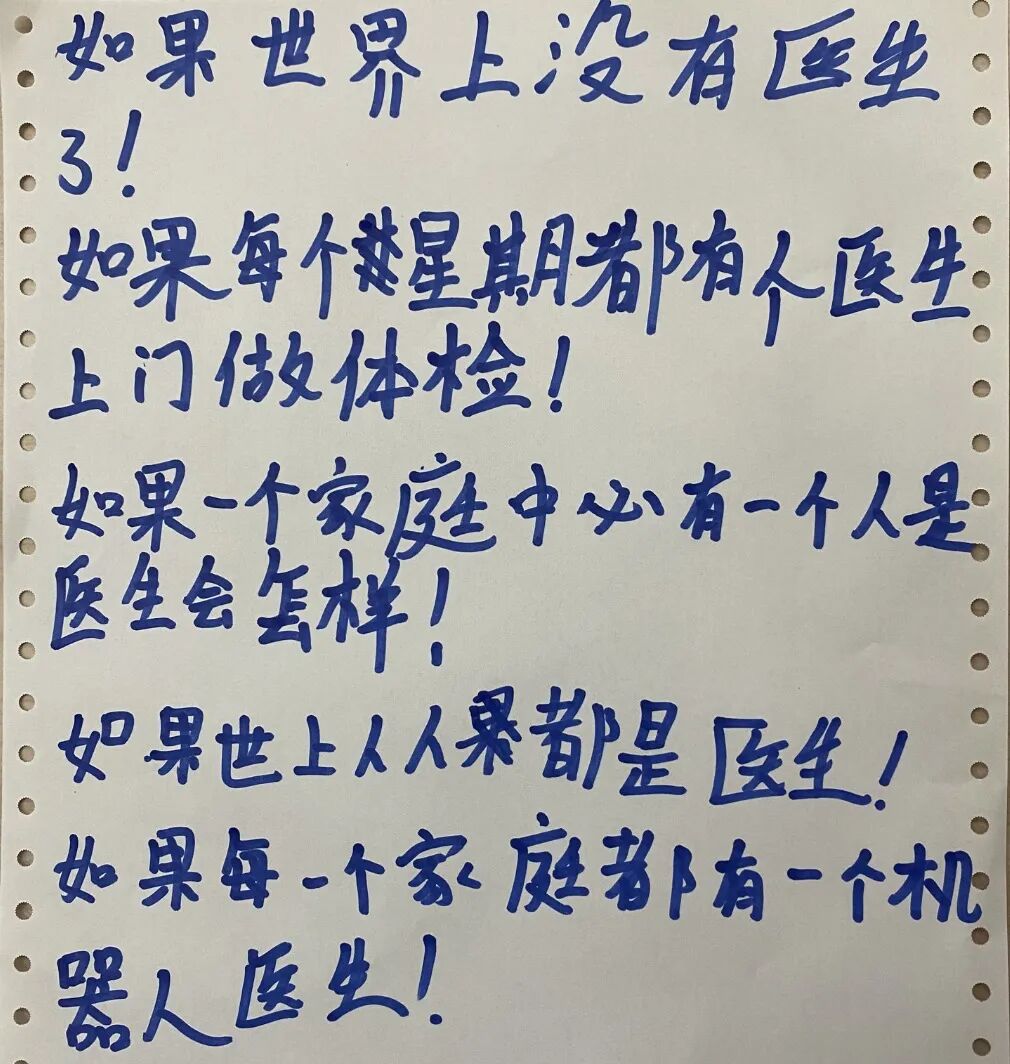 如果世界上没有医生
了！
如果每个星期都有个医生
上门做体检！
如果一个家庭中必有一个人是
医生会怎样！
如果世上人人都是医生！
如果每一个家庭都有一个机
器人医生！